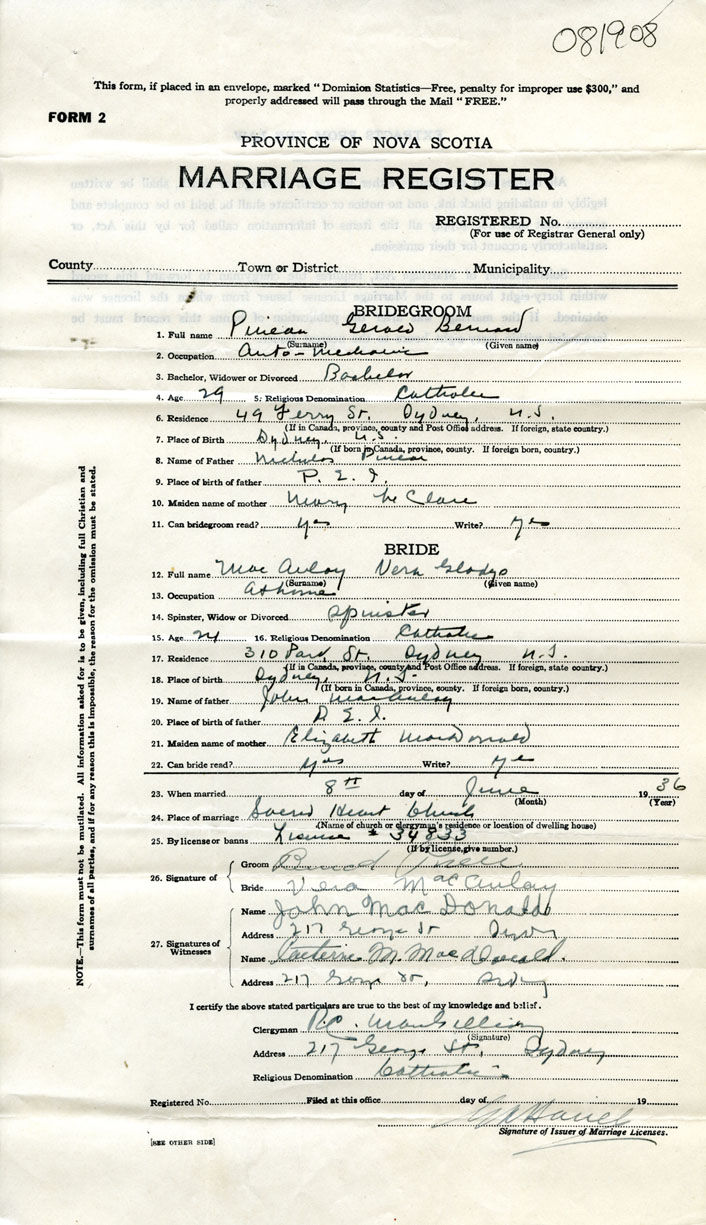 081908
This form, if placed in an envelope, marked "Dominion Statistics—Free, penalty for improper use $300," and
properly addressed will pass through the Mail "FREE."
FORM 2
PROVINCE OF NOVA SCOTIA
MARRIAGE REGISTER
REGISTERED No.
(For use of Registrar General only)
County Town or District Municipality
BRIDEGROOM
1. Full name Gerald Bernard
(Surname) (Given name)
2. Occupation Auto-Mechanic
3. Bachelor, Widower or Divorced Bachelor
4. Age 29 5. Religious Denomination Catholic
6. Residence 49 Ferry St. Sydney, N.S.
(If in Canada, province, county and Post Office address. If foreign, state country.)
7. Place of Birth Sydney, N.S.
(If born in Canada, province, county. If foreign born, country.)
8. Name of Father Nicholas
9. Place of birth of father P. E. I.
10. Maiden name of mother Mary
11. Can bridegroom read? yes Write? yes
BRIDE
12. Full name MacAulay Vera Gladys
(Surname) (Given name)
13. Occupation At home
14. Spinster, Widow or Divorced Spinster
15. Age 24 16. Religious Denomination Catholic
17. Residence 310 Park St. Sydney N.S.
(If in Canada, province, county and Post Office address. If foreign, state country.)
18. Place of birth Sydney, N.S.
(If born in Canada, province, county. If foreign born, country.)
19. Name of father John MacAulay
20. Place of birth of father P. E. I.
21. Maiden name of mother Elizabeth MacDonald
22. Can bride read? yes Write? yes
23. When married 8th day of June 1936
(Month) (Year)
24. Place of marriage Sacred Heart Church
(Name of church or clergyman's residence or location of dwelling house)
25. By license or banns License # 34833
(If by license, give number.)
26. Signature of
Groom
Bride Vera MacAulay
27. Signatures of Witnesses
Name John MacDonald
Address 217 George St Sydney
Name Catherine M. MacDonald.
Address 217 George St, Sydney
I certify the above stated particulars are true to the best of my knowledge and belief.
Clergyman
(Signature)
Address 217 George St, Sydney
Religious Denomination Catholic
Registered No. Filed at this office day of 19
Signature of Issuer of Marriage Licenses.
[SEE OTHER SIDE]
NOTE.—This form must not be mutilated. All information asked for is to be given, including full Christian and
surnames of all parties, and if for any reason this is impossible, the reason for the omission must be stated.